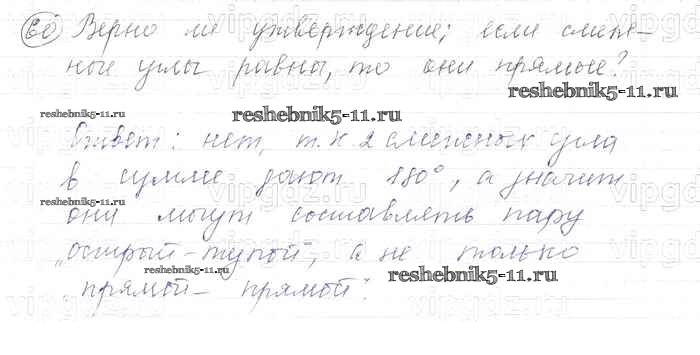 60 Верно ли утверждение; если смеж-
ные углы равны, то они прямые?
reshebnik5-11.ru
reshebnik5-11.ru
reshebnik5-11.ru
Ответ: нет, т.к 2 смежных угла
в сумме дают 180°, а значит
reshebnik5-11.ru
они могут составлять пару
„острый-тупой", а не только
reshebnik5-11.ru
reshebnik5-11.ru
прямой - прямой".